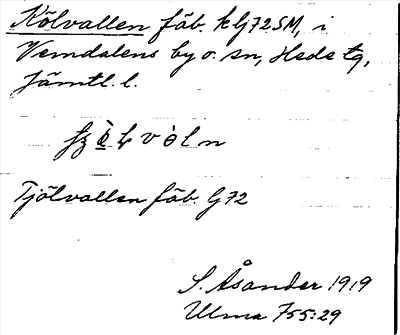 Kölvallen fäb. k G72SM, i
Vemdalens by o. sn, Hede tg,
Jämtl. l.
Tjölvallen fäb. G72
S. Åsander 1919
Ulma 755:29